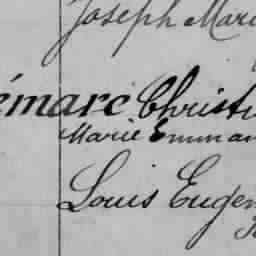 Joseph Mari
émarc Christ
Marie Emman
Louis Eugen